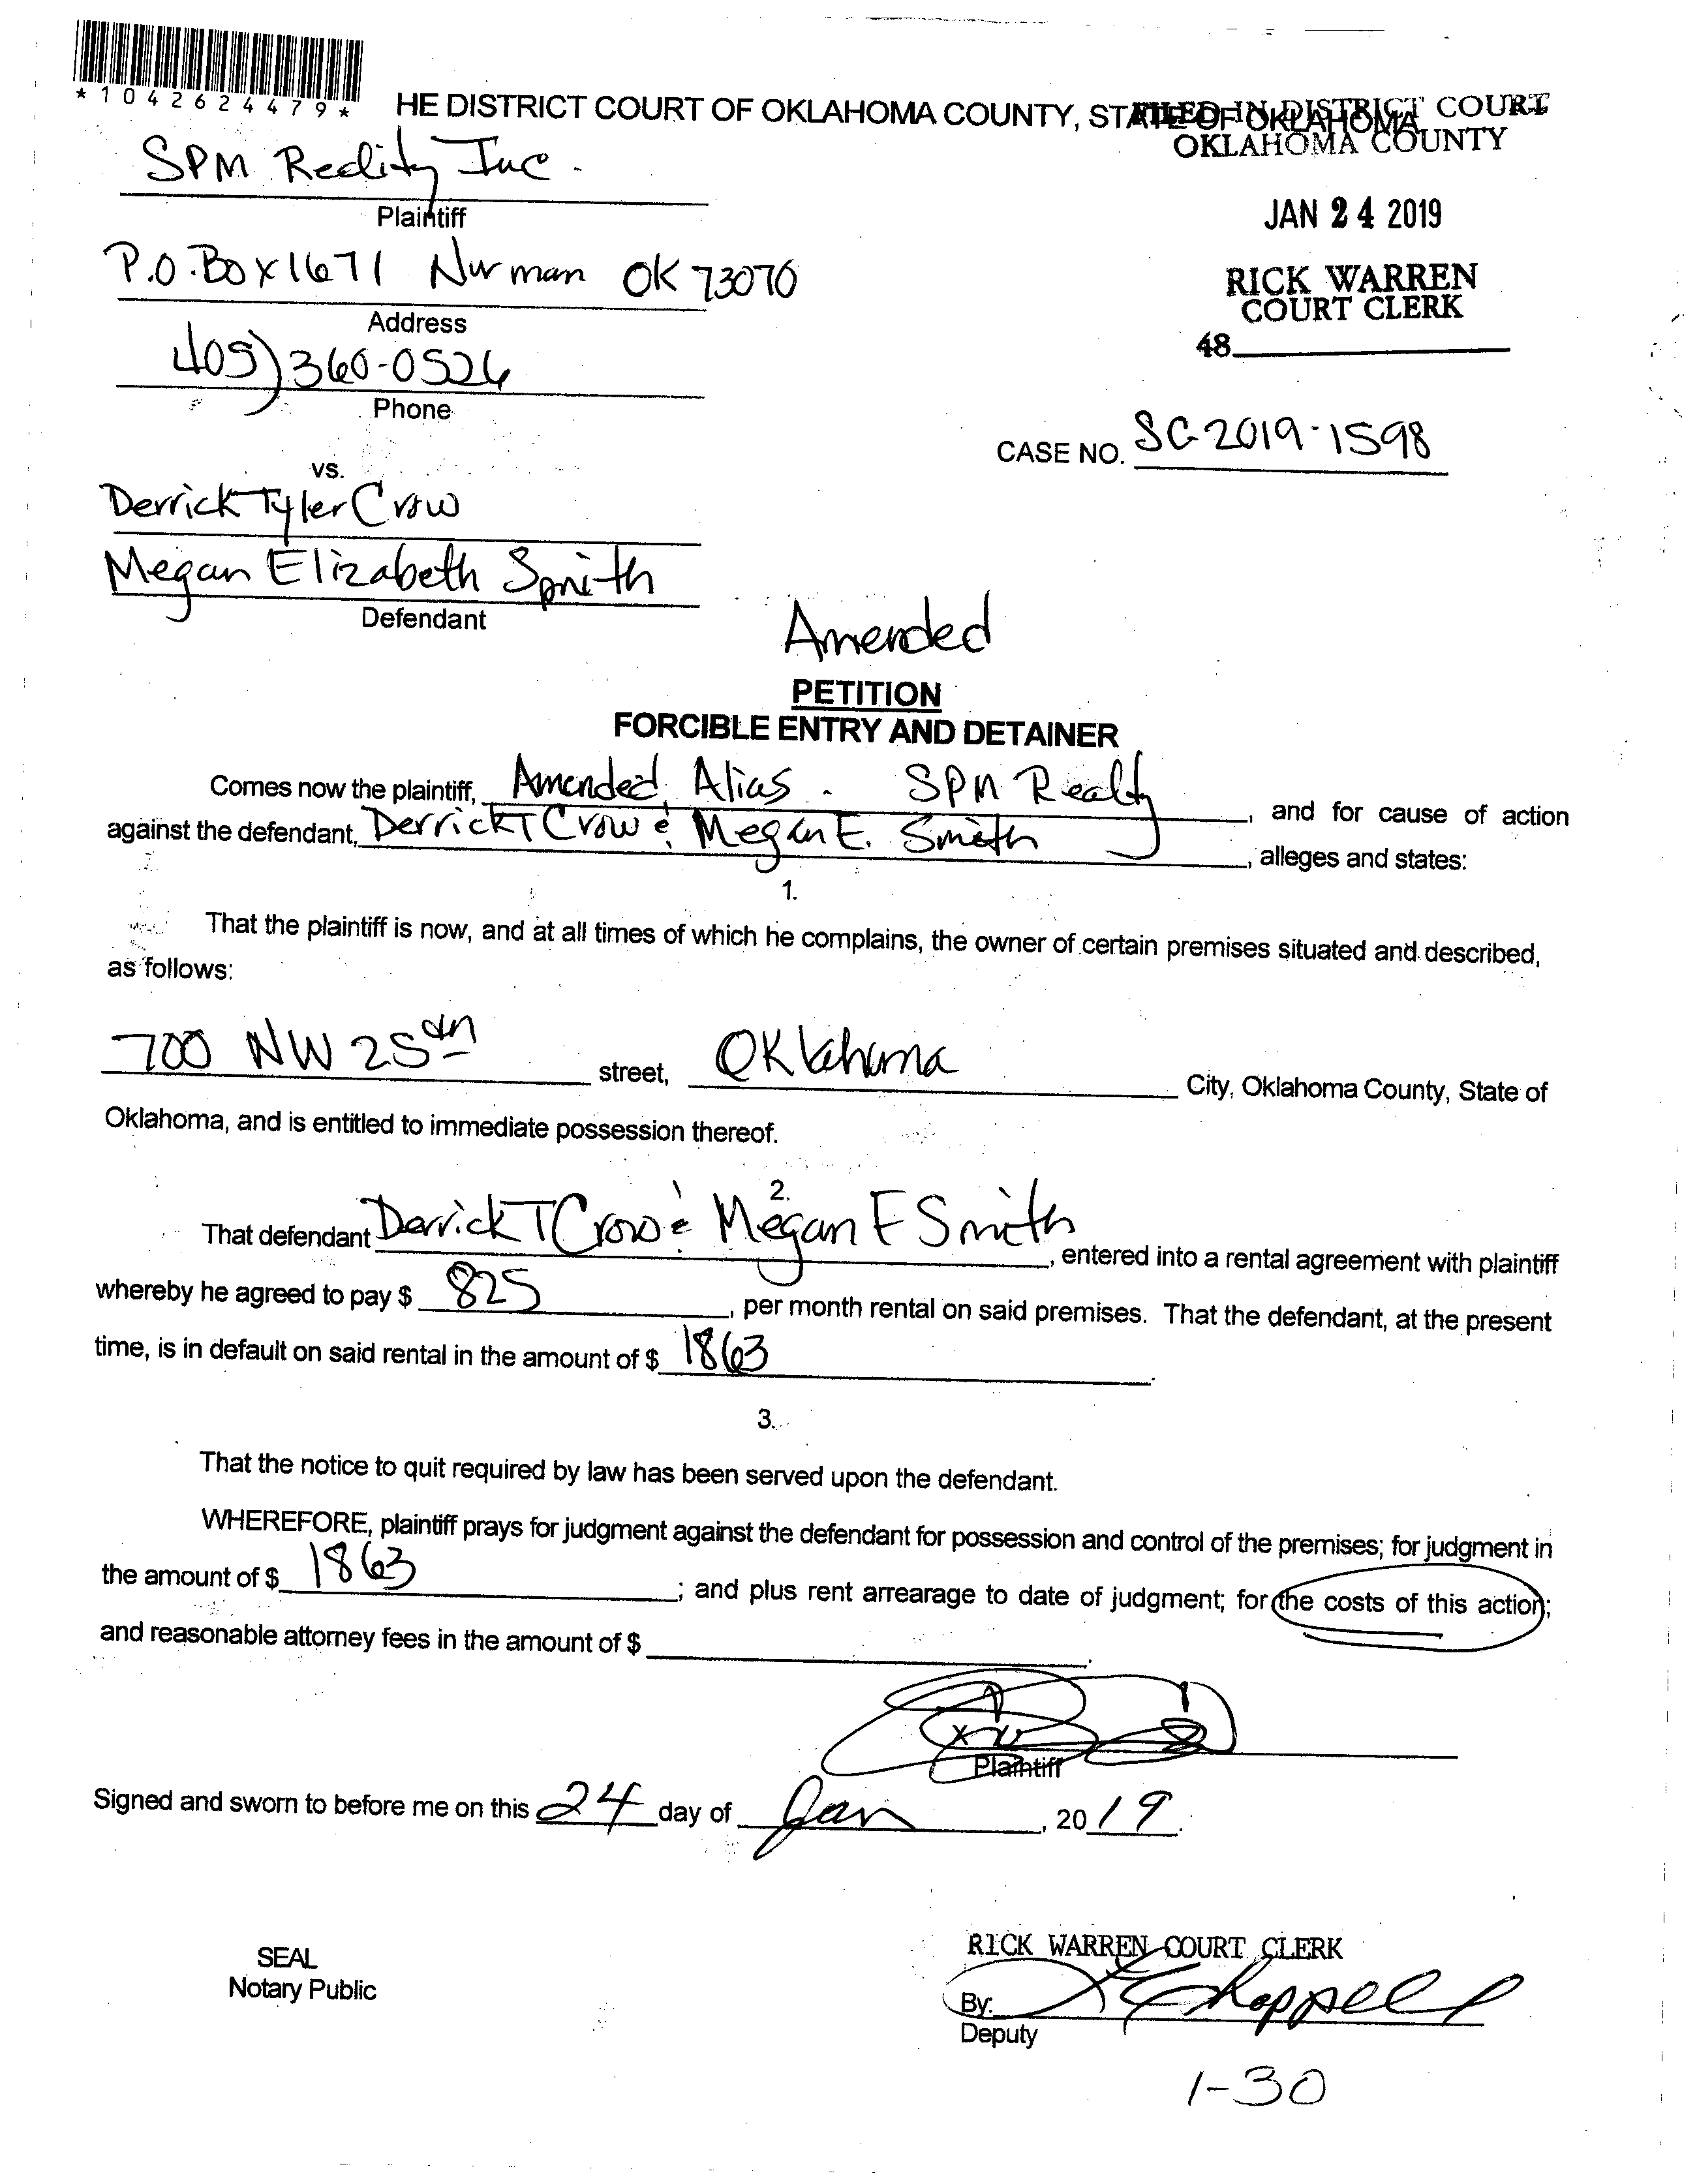 *1042624479*
HE DISTRICT COURT OF OKLAHOMA COUNTY, STATE OF OKLAHOMA
FILED IN DISTRICT COURT
OKLAHOMA COUNTY
SPM Reality Inc.
Plaintiff
JAN 24 2019
P.O. Box 1671 Norman OK 73070
Address
RICK WARREN
COURT CLERK
48
405) 360-0526
Phone
CASE NO. SC-2019-1598
vs.
Derrick Tyler Crow
Megan Elizabeth Smith
Defendant
Amended
PETITION
FORCIBLE ENTRY AND DETAINER
Comes now the plaintiff, Amended Alias. SPM Realty, and for cause of action
against the defendant, Derrick T Crow & Megan E. Smith, alleges and states:
1.
That the plaintiff is now, and at all times of which he complains, the owner of certain premises situated and described,
as follows:
700 NW 25th street, Oklahoma City, Oklahoma County, State of
Oklahoma, and is entitled to immediate possession thereof.
2.
That defendant Derrick T Crow & Megan E Smith, entered into a rental agreement with plaintiff
whereby he agreed to pay $ 825, per month rental on said premises. That the defendant, at the present
time, is in default on said rental in the amount of $ 1863.
3.
That the notice to quit required by law has been served upon the defendant.
WHEREFORE, plaintiff prays for judgment against the defendant for possession and control of the premises; for judgment in
the amount of $ 1863; and plus rent arrearage to date of judgment; for the costs of this action;
and reasonable attorney fees in the amount of $.
x
Plaintiff
Signed and sworn to before me on this 24 day of Jan, 2019.
SEAL
Notary Public
RICK WARREN COURT CLERK
By: Chappell
Deputy
1-30